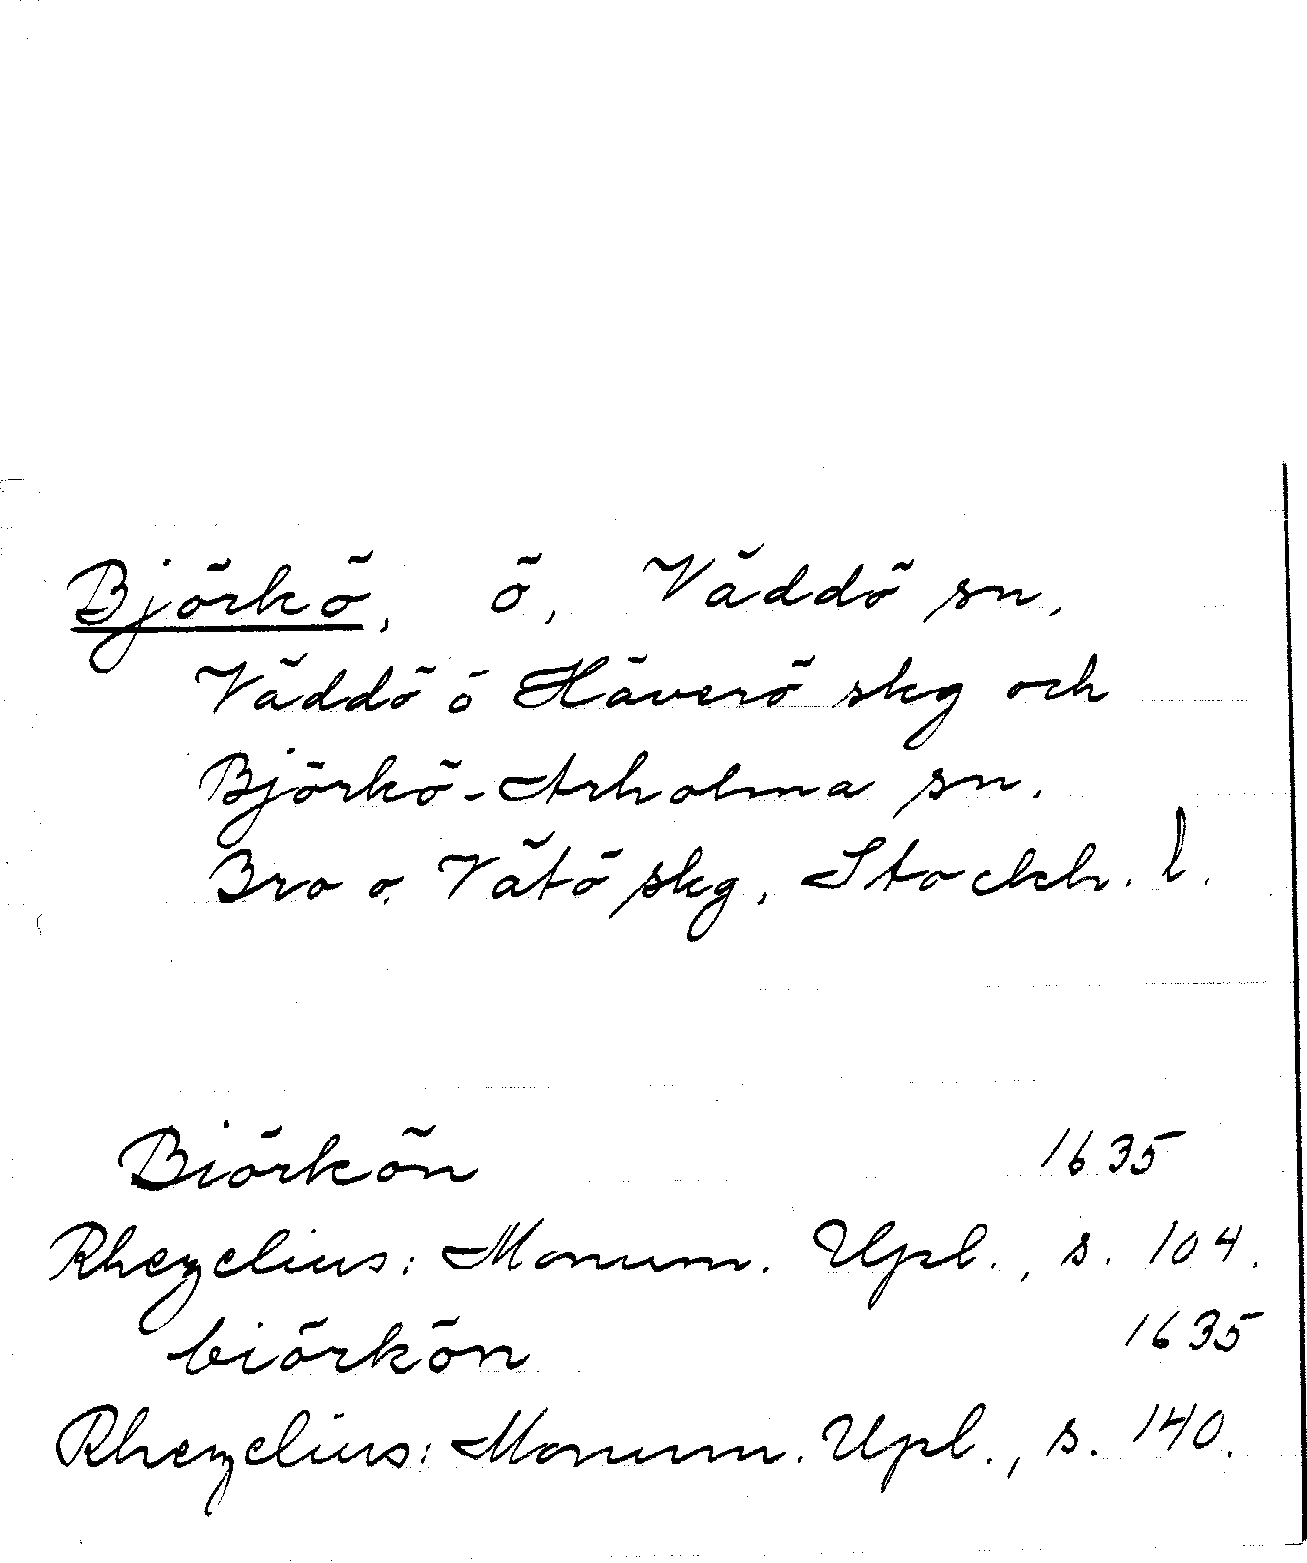 Björkö, ö, Väddö sn,
Väddö o Häverö skg och
Björkö-Arholma sn.
Bro o. Vätö skg, Stockh. l.
Biörkön 1635
Rhezelius: Monum. Upl., s. 104.
biörkön 1635
Rhezelius: Monum. Upl., s. 140.